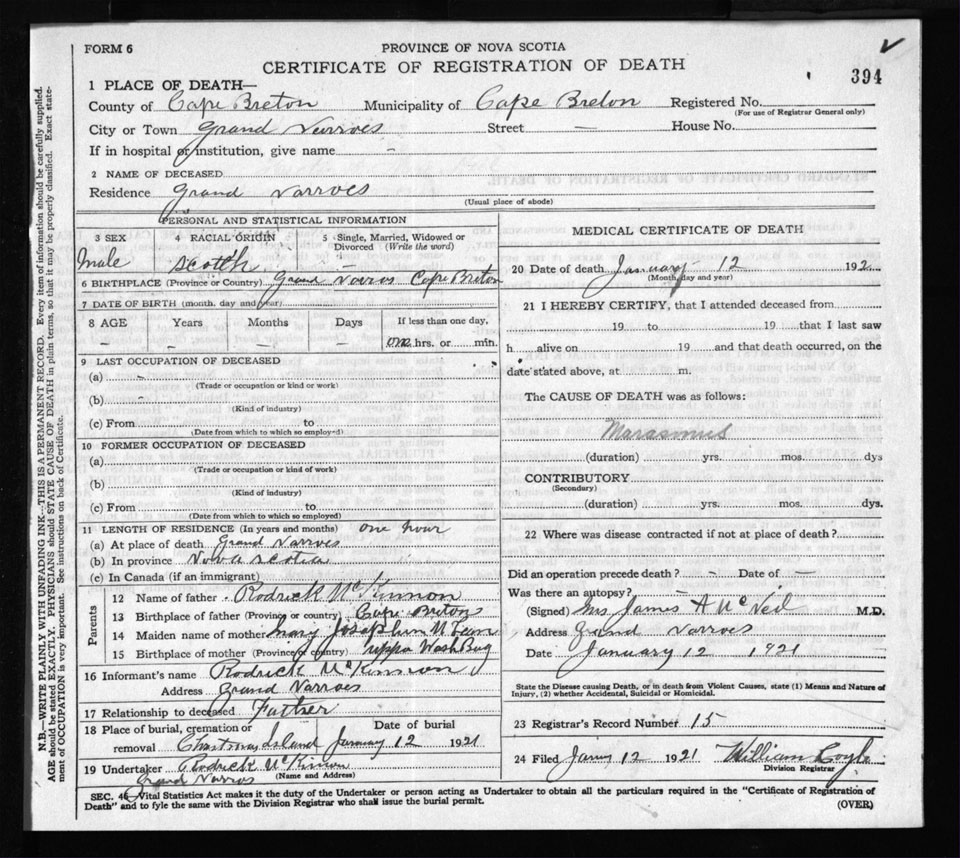 FORM 6
PROVINCE OF NOVA SCOTIA
CERTIFICATE OF REGISTRATION OF DEATH
394
1 PLACE OF DEATH—
County of Cape Breton Municipality of Cape Breton Registered No.
(For use of Registrar General only)
City or Town Grand Narrows Street — House No.
If in hospital or institution, give name -
2 NAME OF DECEASED
Residence Grand Narroes
(Usual place of abode)
PERSONAL AND STATISTICAL INFORMATION
3 SEX 4 RACIAL ORIGIN 5 Single, Married, Widowed or Divorced (Write the word)
male Scotch —
6 BIRTHPLACE (Province or Country) Grand Narros Cape Breton
7 DATE OF BIRTH (month, day and year)
8 AGE Years Months Days If less than one day,
- - - - one hrs. or min.
9 LAST OCCUPATION OF DECEASED
(a) -
(Trade or occupation or kind or work)
(b) -
(Kind of industry)
(c) From to
(Date from which to which so employed)
10 FORMER OCCUPATION OF DECEASED
(a)
(Trade or occupation or kind of work)
(b)
(Kind of industry)
(c) From to
(Date from which to which so employed)
11 LENGTH OF RESIDENCE (In years and months) one hour
(a) At place of death Grand Narroes
(b) In province Nova Scotia
(c) In Canada (if an immigrant)
Parents
12 Name of father Rodrick McKinnon
13 Birthplace of father (Province or country) Cape Breton
14 Maiden name of mother Mary
15 Birthplace of mother (Province or country) Washbug
16 Informant's name Rodrick McKinnon
Address Grand Narroes
17 Relationship to deceased Father
18 Place of burial, cremation or removal Island January 12 1921
Date of burial
19 Undertaker Rodrick McKinnon
(Name and Address)
Grand Narros
MEDICAL CERTIFICATE OF DEATH
20 Date of death January 12 192
(Month, day and year)
21 I HEREBY CERTIFY, that I attended deceased from
19 to 19 that I last saw
h alive on 19 and that death occurred, on the
date stated above, at m.
The CAUSE OF DEATH was as follows:
Marasmus
(duration) yrs. mos. dys
CONTRIBUTORY
(Secondary)
(duration) yrs. mos. dys.
22 Where was disease contracted if not at place of death?
Did an operation precede death? - Date of —
Was there an autopsy? —
(Signed) Mrs James A McNeil M.D.
Address Grand Narroes
Date January 12 1921
State the Disease causing Death, or in death from Violent Causes, state (1) Means and Nature of
Injury, (2) whether Accidental, Suicidal or Homicidal.
23 Registrar's Record Number 15
24 Filed Jany 12 1921 William
Division Registrar
SEC. 46 Vital Statistics Act makes it the duty of the Undertaker or person acting as Undertaker to obtain all the particulars required in the "Certificate of Registration of
Death" and to fyle the same with the Division Registrar who shall issue the burial permit. (OVER)
N.B.—WRITE PLAINLY WITH UNFADING INK—THIS IS A PERMANENT RECORD. Every item of information should be carefully supplied.
AGE should be stated EXACTLY. PHYSICIANS should STATE CAUSE OF DEATH in plain terms, so that it may be properly classified. Exact state-
ment of OCCUPATION is very important. See instructions on back of Certificate.